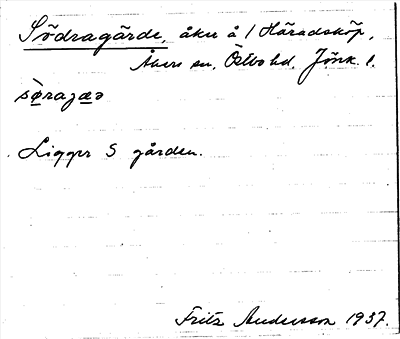 Södragärde, åker å 1 Häradsköp,
Åkers sn, Östbo hd. Jönk. l.
sø̀raȷæə
Ligger S gården.
Fritz Andersson 1937.